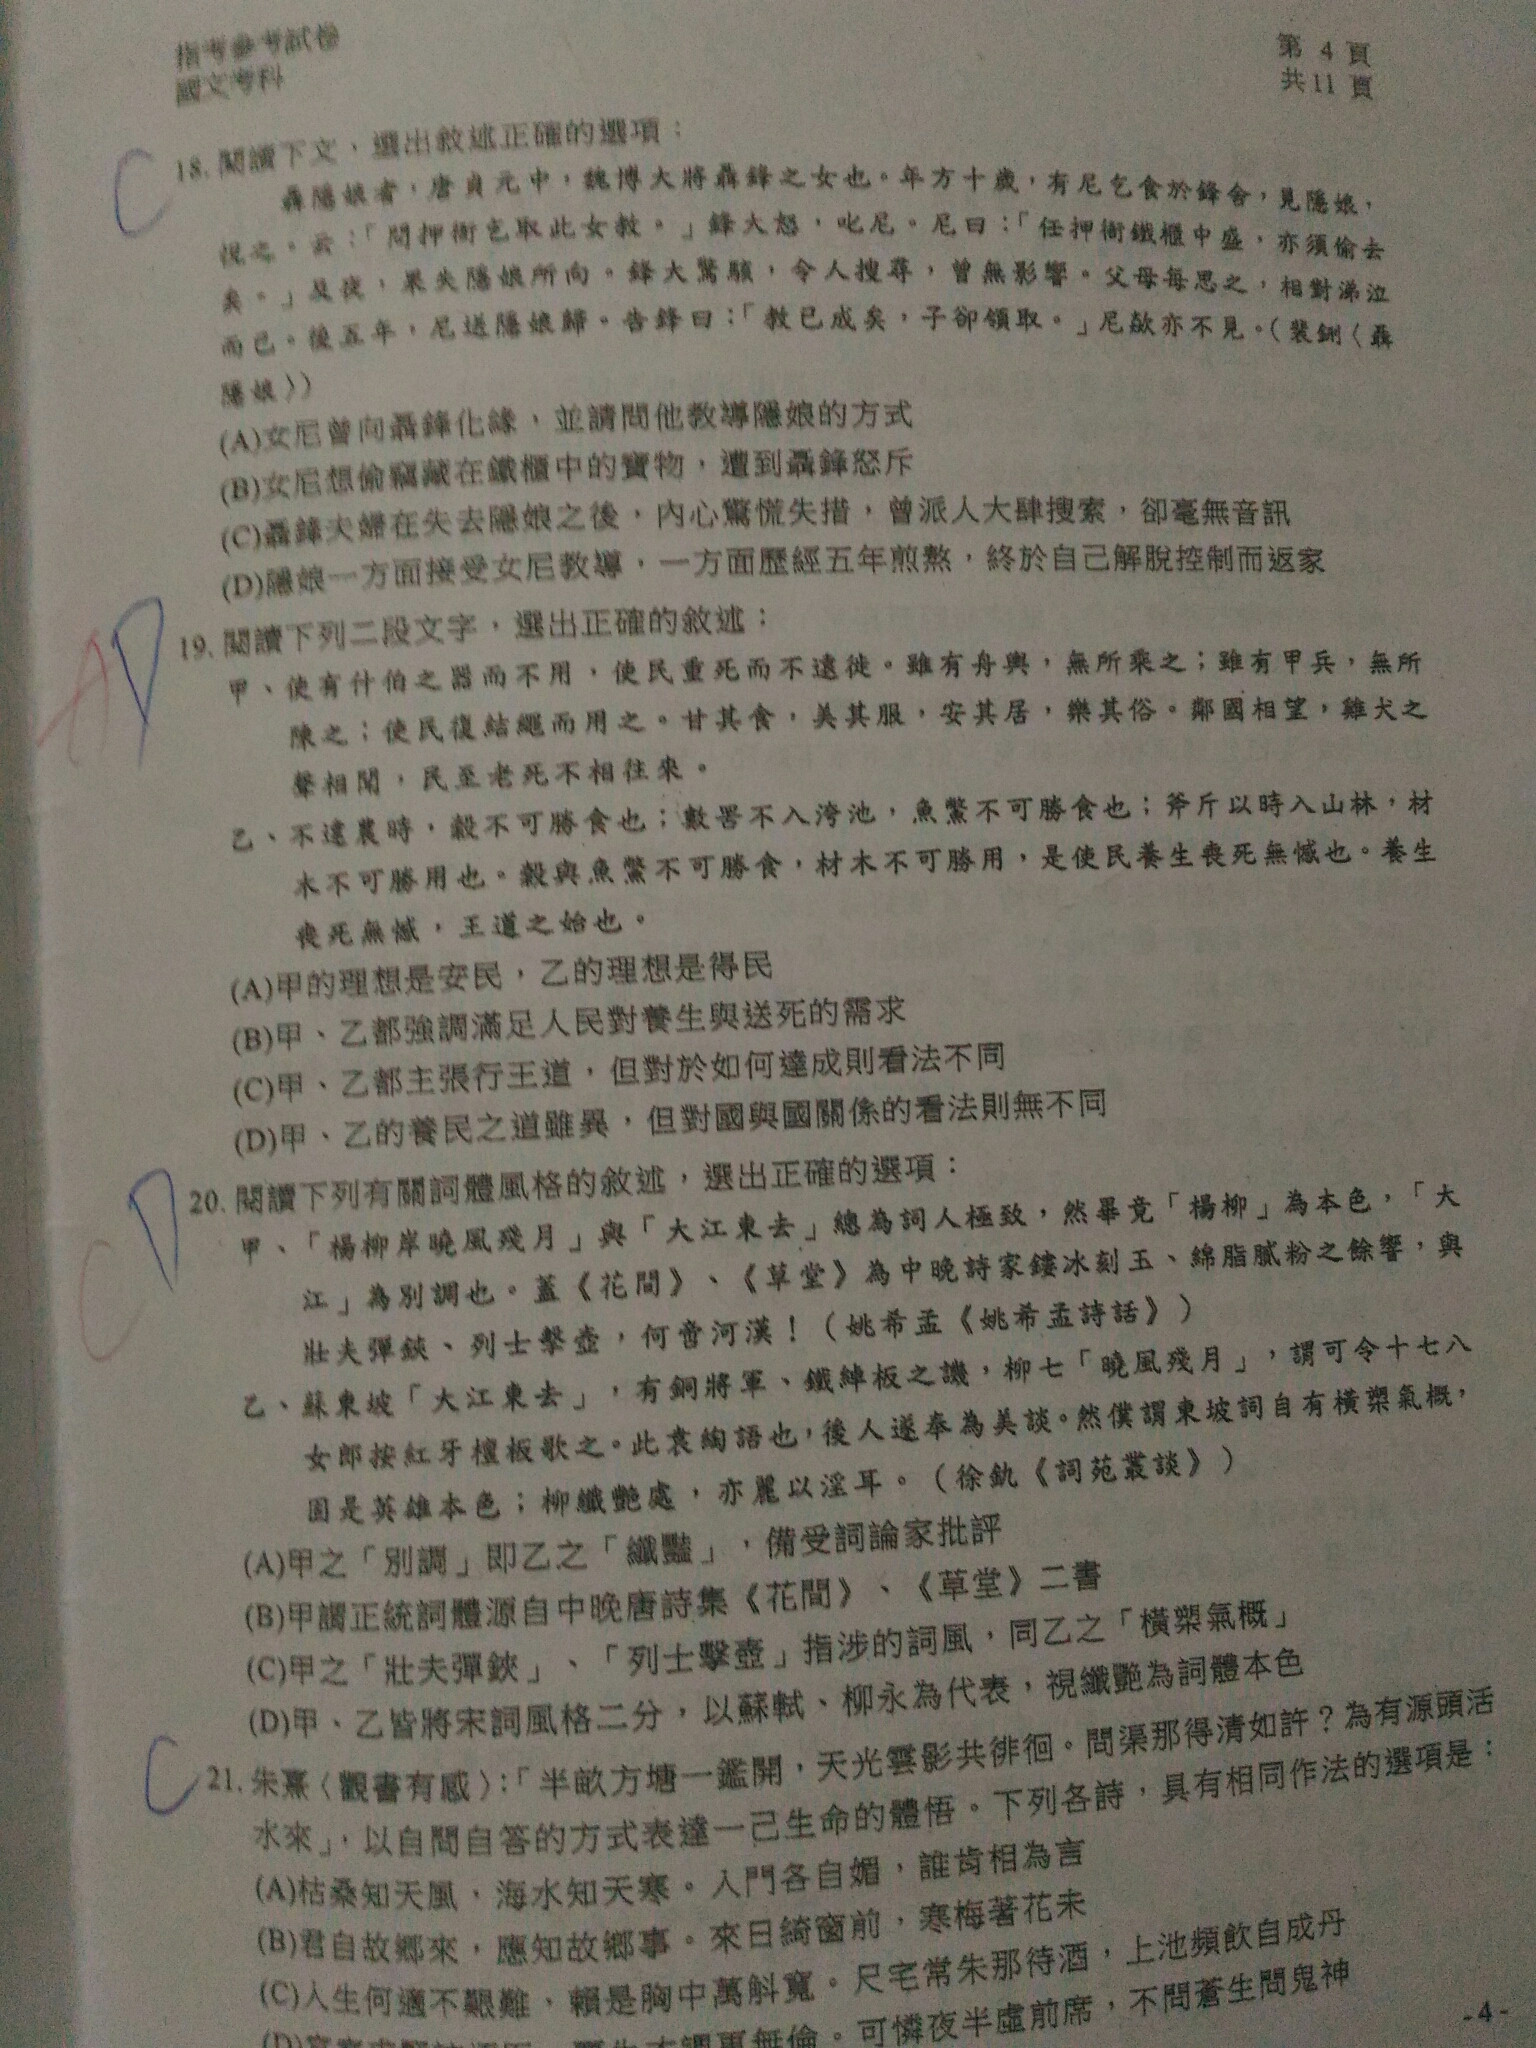 指考參考試卷
國文考科
第 4 頁
共11 頁
C
18. 閱讀下文，選出敘述正確的選項：
聶隱娘者，唐貞元中，魏博大將聶鋒之女也。年方十歲，有尼乞食於鋒舍，見隱娘，
悅之。云：「問押衙乞取此女教。」鋒大怒，叱尼。尼曰：「任押衙鐵櫃中盛，亦須偷去
矣。」及夜，果失隱娘所向。鋒大驚駭，令人搜尋，曾無影響。父母每思之，相對涕泣
而已。後五年，尼送隱娘歸。告鋒曰：「教已成矣，子卻領取。」尼歘亦不見。（裴鉶〈聶
隱娘〉）
(A)女尼曾向聶鋒化緣，並請問他教導隱娘的方式
(B)女尼想偷竊藏在鐵櫃中的寶物，遭到聶鋒怒斥
(C)聶鋒夫婦在失去隱娘之後，內心驚慌失措，曾派人大肆搜索，卻毫無音訊
(D)隱娘一方面接受女尼教導，一方面歷經五年煎熬，終於自己解脫控制而返家
A D
19. 閱讀下列二段文字，選出正確的敘述：
甲、使有什伯之器而不用，使民重死而不遠徙。雖有舟輿，無所乘之；雖有甲兵，無所
陳之；使民復結繩而用之。甘其食，美其服，安其居，樂其俗。鄰國相望，雞犬之
聲相聞，民至老死不相往來。
乙、不違農時，穀不可勝食也；數罟不入洿池，魚鱉不可勝食也；斧斤以時入山林，材
木不可勝用也。穀與魚鱉不可勝食，材木不可勝用，是使民養生喪死無憾也。養生
喪死無憾，王道之始也。
(A)甲的理想是安民，乙的理想是得民
(B)甲、乙都強調滿足人民對養生與送死的需求
(C)甲、乙都主張行王道，但對於如何達成則看法不同
(D)甲、乙的養民之道雖異，但對國與國關係的看法則無不同
C D
20. 閱讀下列有關詞體風格的敘述，選出正確的選項：
甲、「楊柳岸曉風殘月」與「大江東去」總為詞人極致，然畢竟「楊柳」為本色，「大
江」為別調也。蓋《花間》、《草堂》為中晚詩家鏤冰刻玉、綿脂膩粉之餘響，與
壯夫彈鋏、列士擊壺，何啻河漢！（姚希孟《姚希孟詩話》）
乙、蘇東坡「大江東去」，有銅將軍、鐵綽板之譏，柳七「曉風殘月」，謂可令十七八
女郎按紅牙檀板歌之。此袁綯語也，後人遂奉為美談。然僕謂東坡詞自有橫槊氣概，
固是英雄本色；柳纖艷處，亦麗以淫耳。（徐釚《詞苑叢談》）
(A)甲之「別調」即乙之「纖豔」，備受詞論家批評
(B)甲謂正統詞體源自中晚唐詩集《花間》、《草堂》二書
(C)甲之「壯夫彈鋏」、「列士擊壺」指涉的詞風，同乙之「橫槊氣概」
(D)甲、乙皆將宋詞風格二分，以蘇軾、柳永為代表，視纖艷為詞體本色
C
21. 朱熹〈觀書有感〉：「半畝方塘一鑑開，天光雲影共徘徊。問渠那得清如許？為有源頭活
水來」，以自問自答的方式表達一己生命的體悟。下列各詩，具有相同作法的選項是：
(A)枯桑知天風，海水知天寒。入門各自媚，誰肯相為言
(B)君自故鄉來，應知故鄉事。來日綺窗前，寒梅著花未
(C)人生何適不艱難，賴是胸中萬斛寬。尺宅常朱那待酒，上池頻飲自成丹
可憐夜半虛前席，不問蒼生問鬼神
-4-